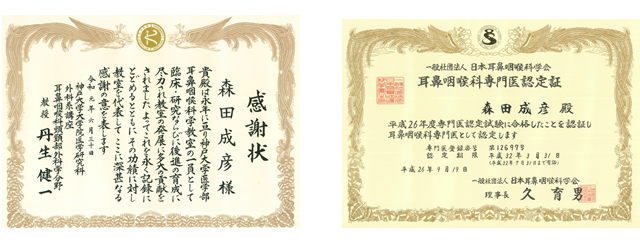 感謝状
森田成彦様
貴殿は永年に亘り神戸大学医学部
耳鼻咽喉科学教室の一員として
臨床・研究ならびに後進の育成に
尽力され教室の発展に多大の貢献を
されましたよってこれを永く記録に
とどめるとともにその功績に対し
教室を代表してここに深甚なる
感謝の意を表します
令和元年六月三十日
神戸大学大学院医学研究科
外科系講座
耳鼻咽喉科頭頸部外科学分野
教授 丹生健一
一般社団法人 日本耳鼻咽喉科学会
耳鼻咽喉科専門医認定証
森田成彦 殿
平成26年度専門医認定試験に合格したことを認証し
耳鼻咽喉科専門医として認定します
専門医登録番号 第12699号
認定期限 平成32年3月31日
平成26年9月19日
一般社団法人 日本耳鼻咽喉科学会
理事長 久育男